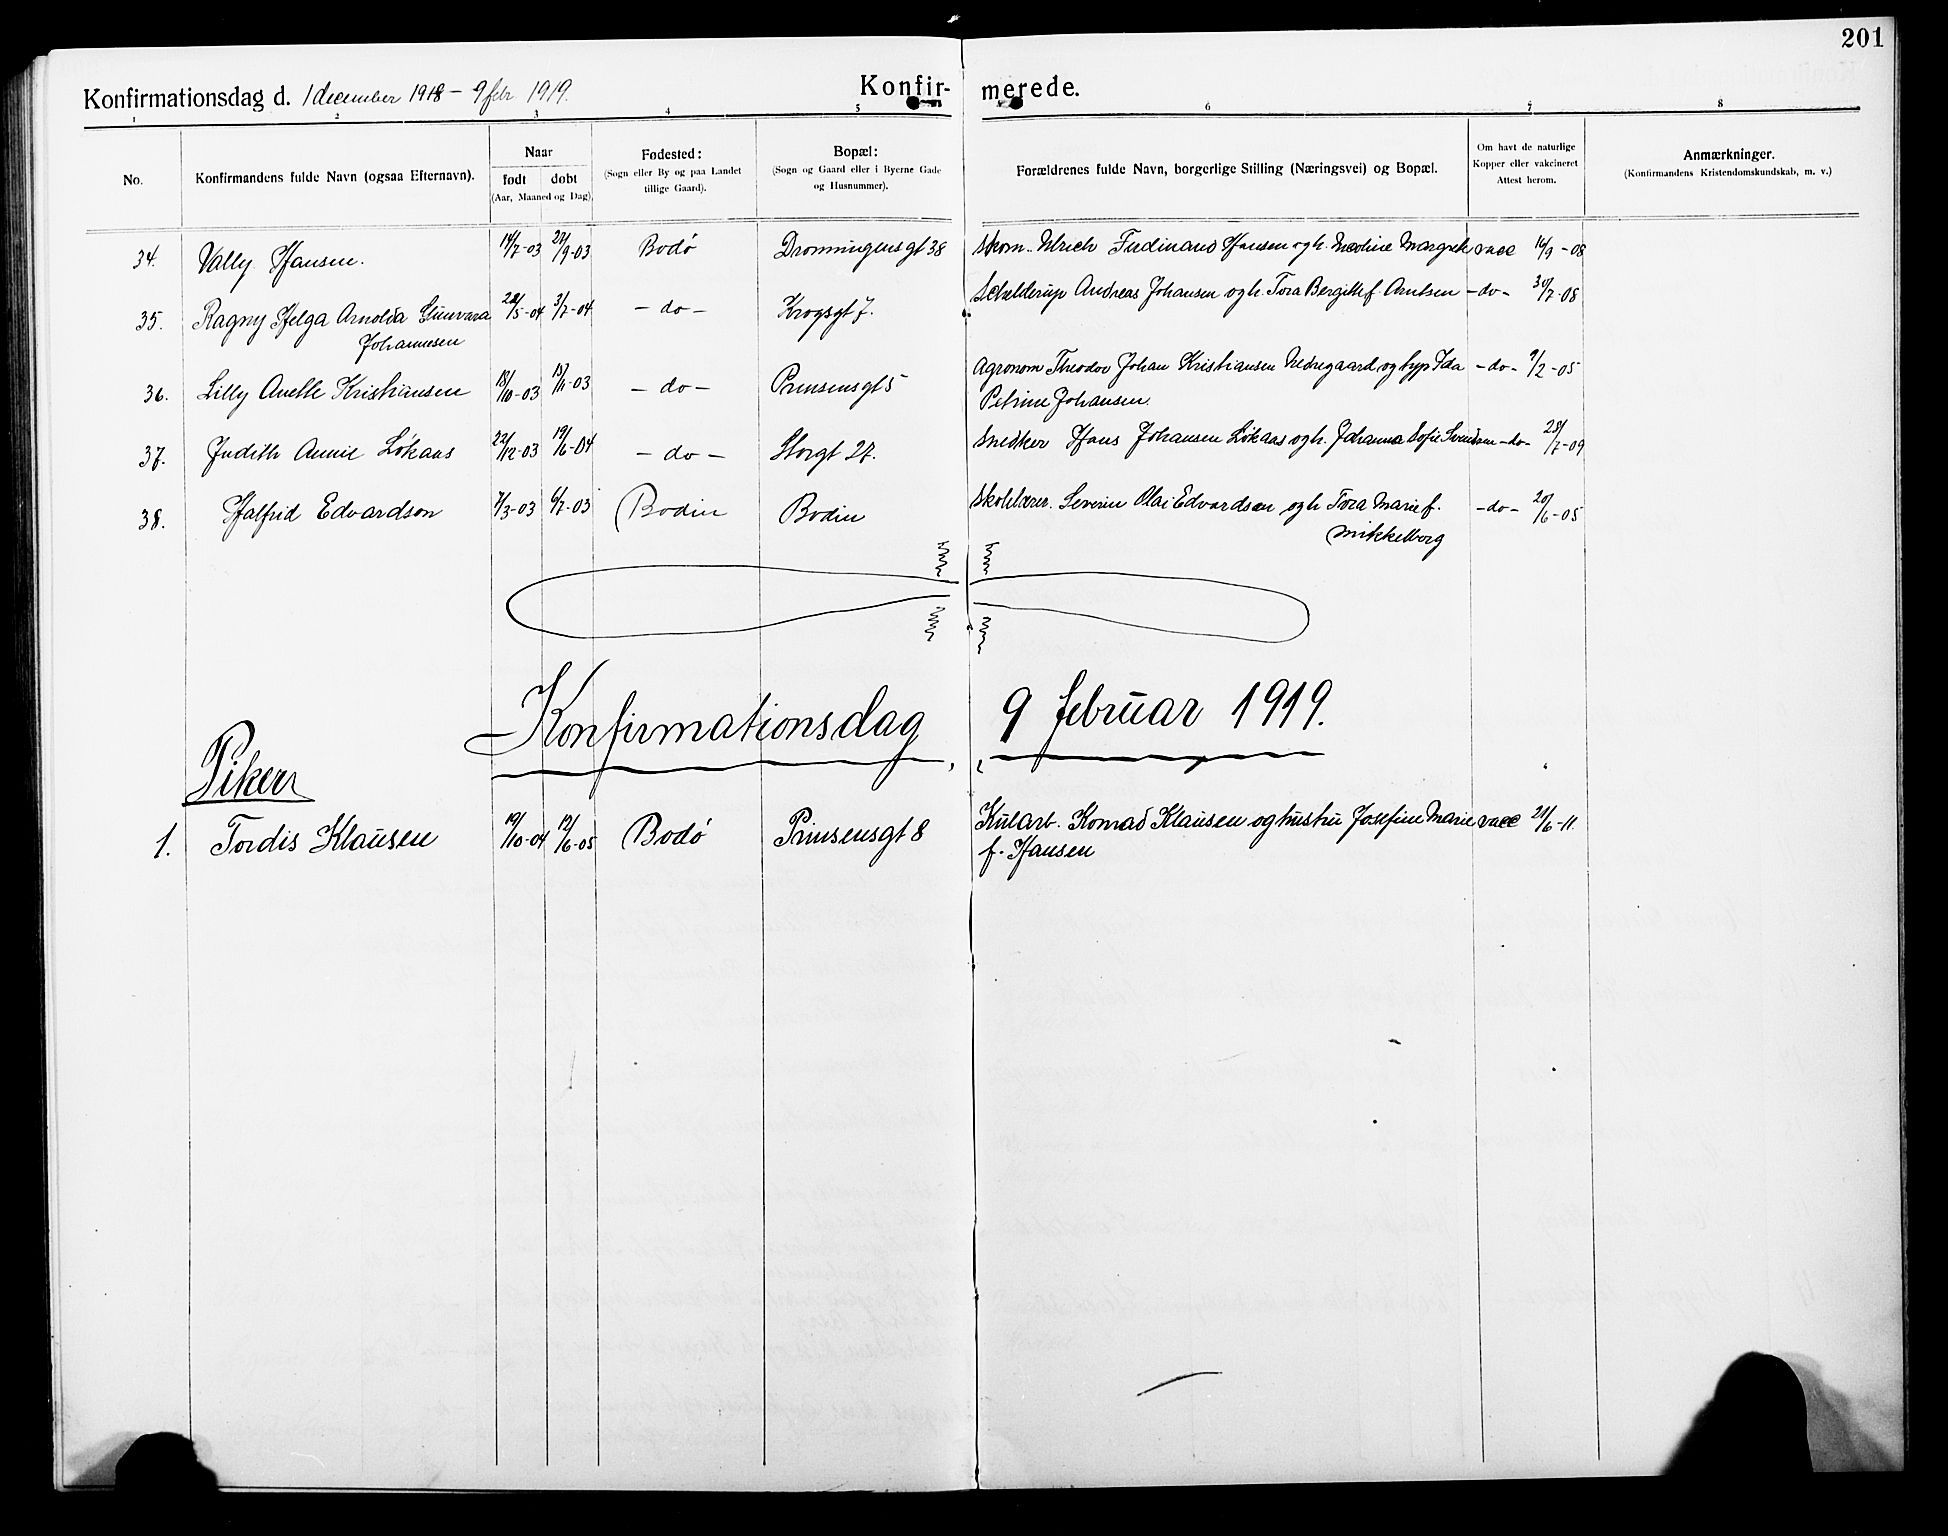 201
Konfirmationsdag d. 1 december 1918 - 9 febr 1919. Konfirmerede.
1 2 3 4 5 6 7 8
No. Konfirmandens fulde Navn (ogsaa Efternavn). Naar født døbt (Aar, Maaned og Dag). Fødested: (Sogn eller By og paa Landet tillige Gaard). Bopæl: (Sogn og Gaard eller i Byerne Gade og Husnummer). Forældrenes fulde Navn, borgerlige Stilling (Næringsvei) og Bopæl. Om havt de naturlige Kopper eller vakcineret Attest herom. Anmærkninger. (Konfirmandens Kristendomskundskab, m. v.)
34. Vally Hansen. 14/7-03 27/9-03 Bodø Dronningensgt 38 Skom. Ulrich Ferdinand Hansen og h. Margrete vacc 14/9-08
35. Ragny Helga Arnolda Gunvara 3/7-04 -do- Krogsgt 7. Schelderup Andreas Johansen og h. Tora Bergitte f Arntsen -do- 30/7-08
Johannesen
36. Lilly Anette Kristiansen 18/10-03 15/11-03 -do- Prinsensgt 5 Agronom Theodor Johan Kristiansen Nedregaard og hyp Ida -do- 9/2-05
Petrine Johansen.
37. Judith Annie Løkaas 22/12-03 19/6-04 -do- Storgt 27. Snedker Hans Johansen Løkaas og h. Johanna Sofie Svendsen -do- 28/7-09
38. Halfrid Edvardson 7/3-03 6/7-03 Bodin Bodin Skolelærer. Severin Olai Edvardsen og h Tora Marie f. -do- 20/6-05
Mikkelborg
Konfirmationsdag, 9 februar 1919.
Piker
1. Tordis Klausen 19/10-04 12/6-05 Bodø Prinsensgt 8 Kularb. Konrad Klausen og hustru Josefine Marie vacc 21/6-11.
f. Hansen